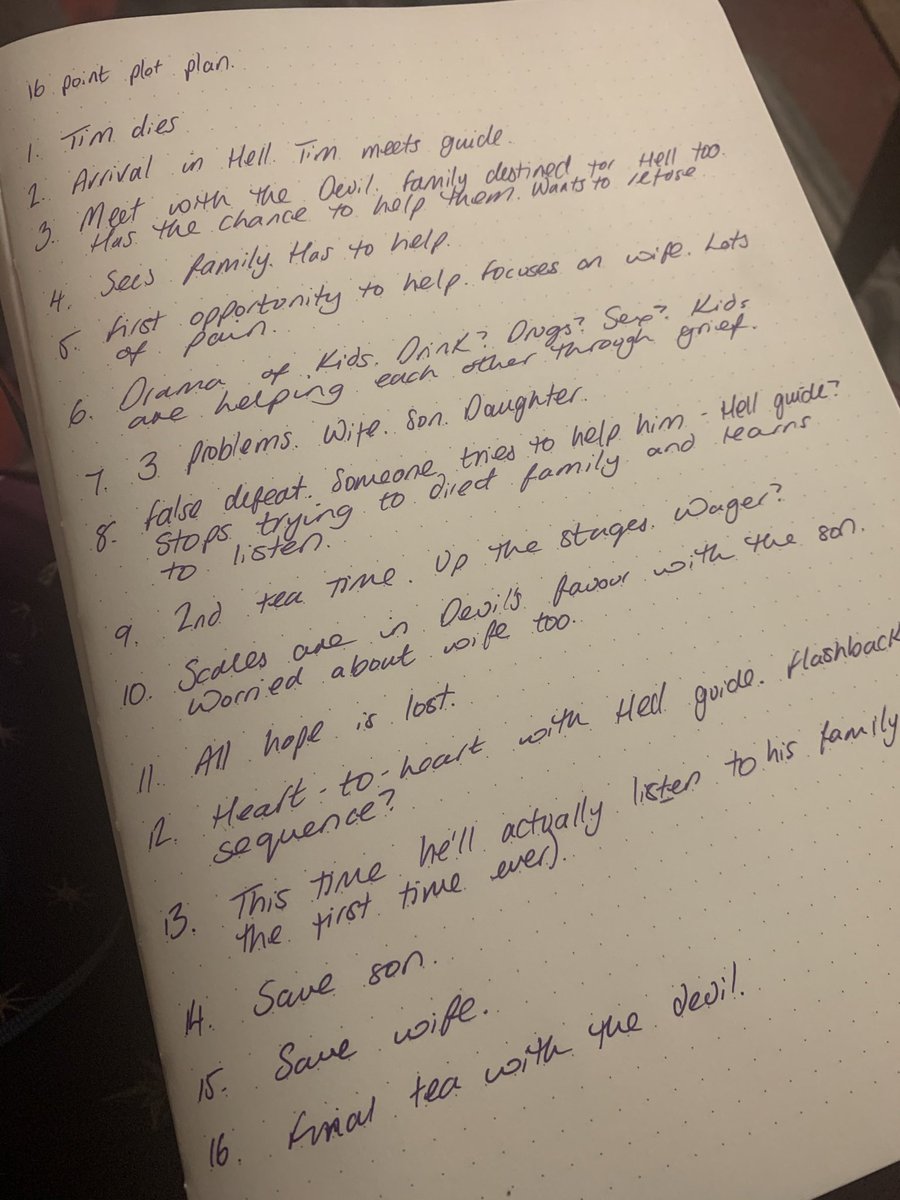 16 point plot plan.
1. Tim dies
2. Arrival in Hell. Tim meets guide.
3. Meet with the Devil. Family destined for Hell too.
Has the chance to help them. Wants to refuse.
4. Sees family. Has to help.
5. First opportunity to help. Focuses on wife. Lots
of pain.
6. Drama of Kids. Drink? Drugs? Sex? Kids
are helping each other through grief.
7. 3 problems. Wife. Son. Daughter.
8. False defeat. Someone tries to help him - Hell guide?
Stops trying to direct family and learns
to listen.
9. 2nd tea time. Up the stages. Wager?
10. Scales are in Devil's favour with the son.
Worried about wife too.
11. All hope is lost.
12. Heart-to-heart with Hell guide. Flashback
sequence?
13. This time he'll actually listen to his family
the first time ever).
14. Save son.
15. Save wife.
16. Final tea with the devil.